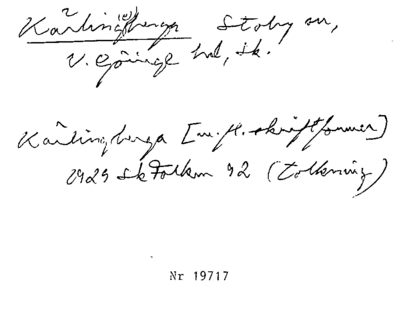 Kärling(e)berga Stoby sn,
V. Göinge hd, Sk.
Kärlingberga [m. fl. skriftformer]
1929 SkFolkm 92 (tolkning)
Nr 19717